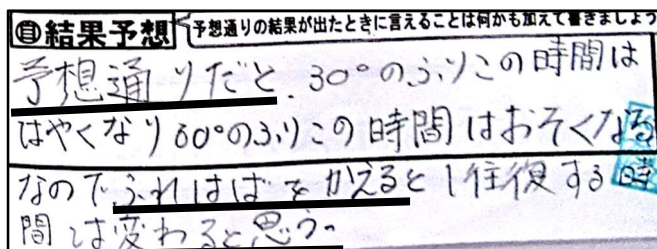 ㊂結果予想 予想通りの結果が出たときに言えることは何かも加えて書きましょう
予想通りだと、30°のふりこの時間は
はやくなり60°のふりこの時間はおそくなる
なのでふれはばをかえると1往復する時
間は変わると思う。